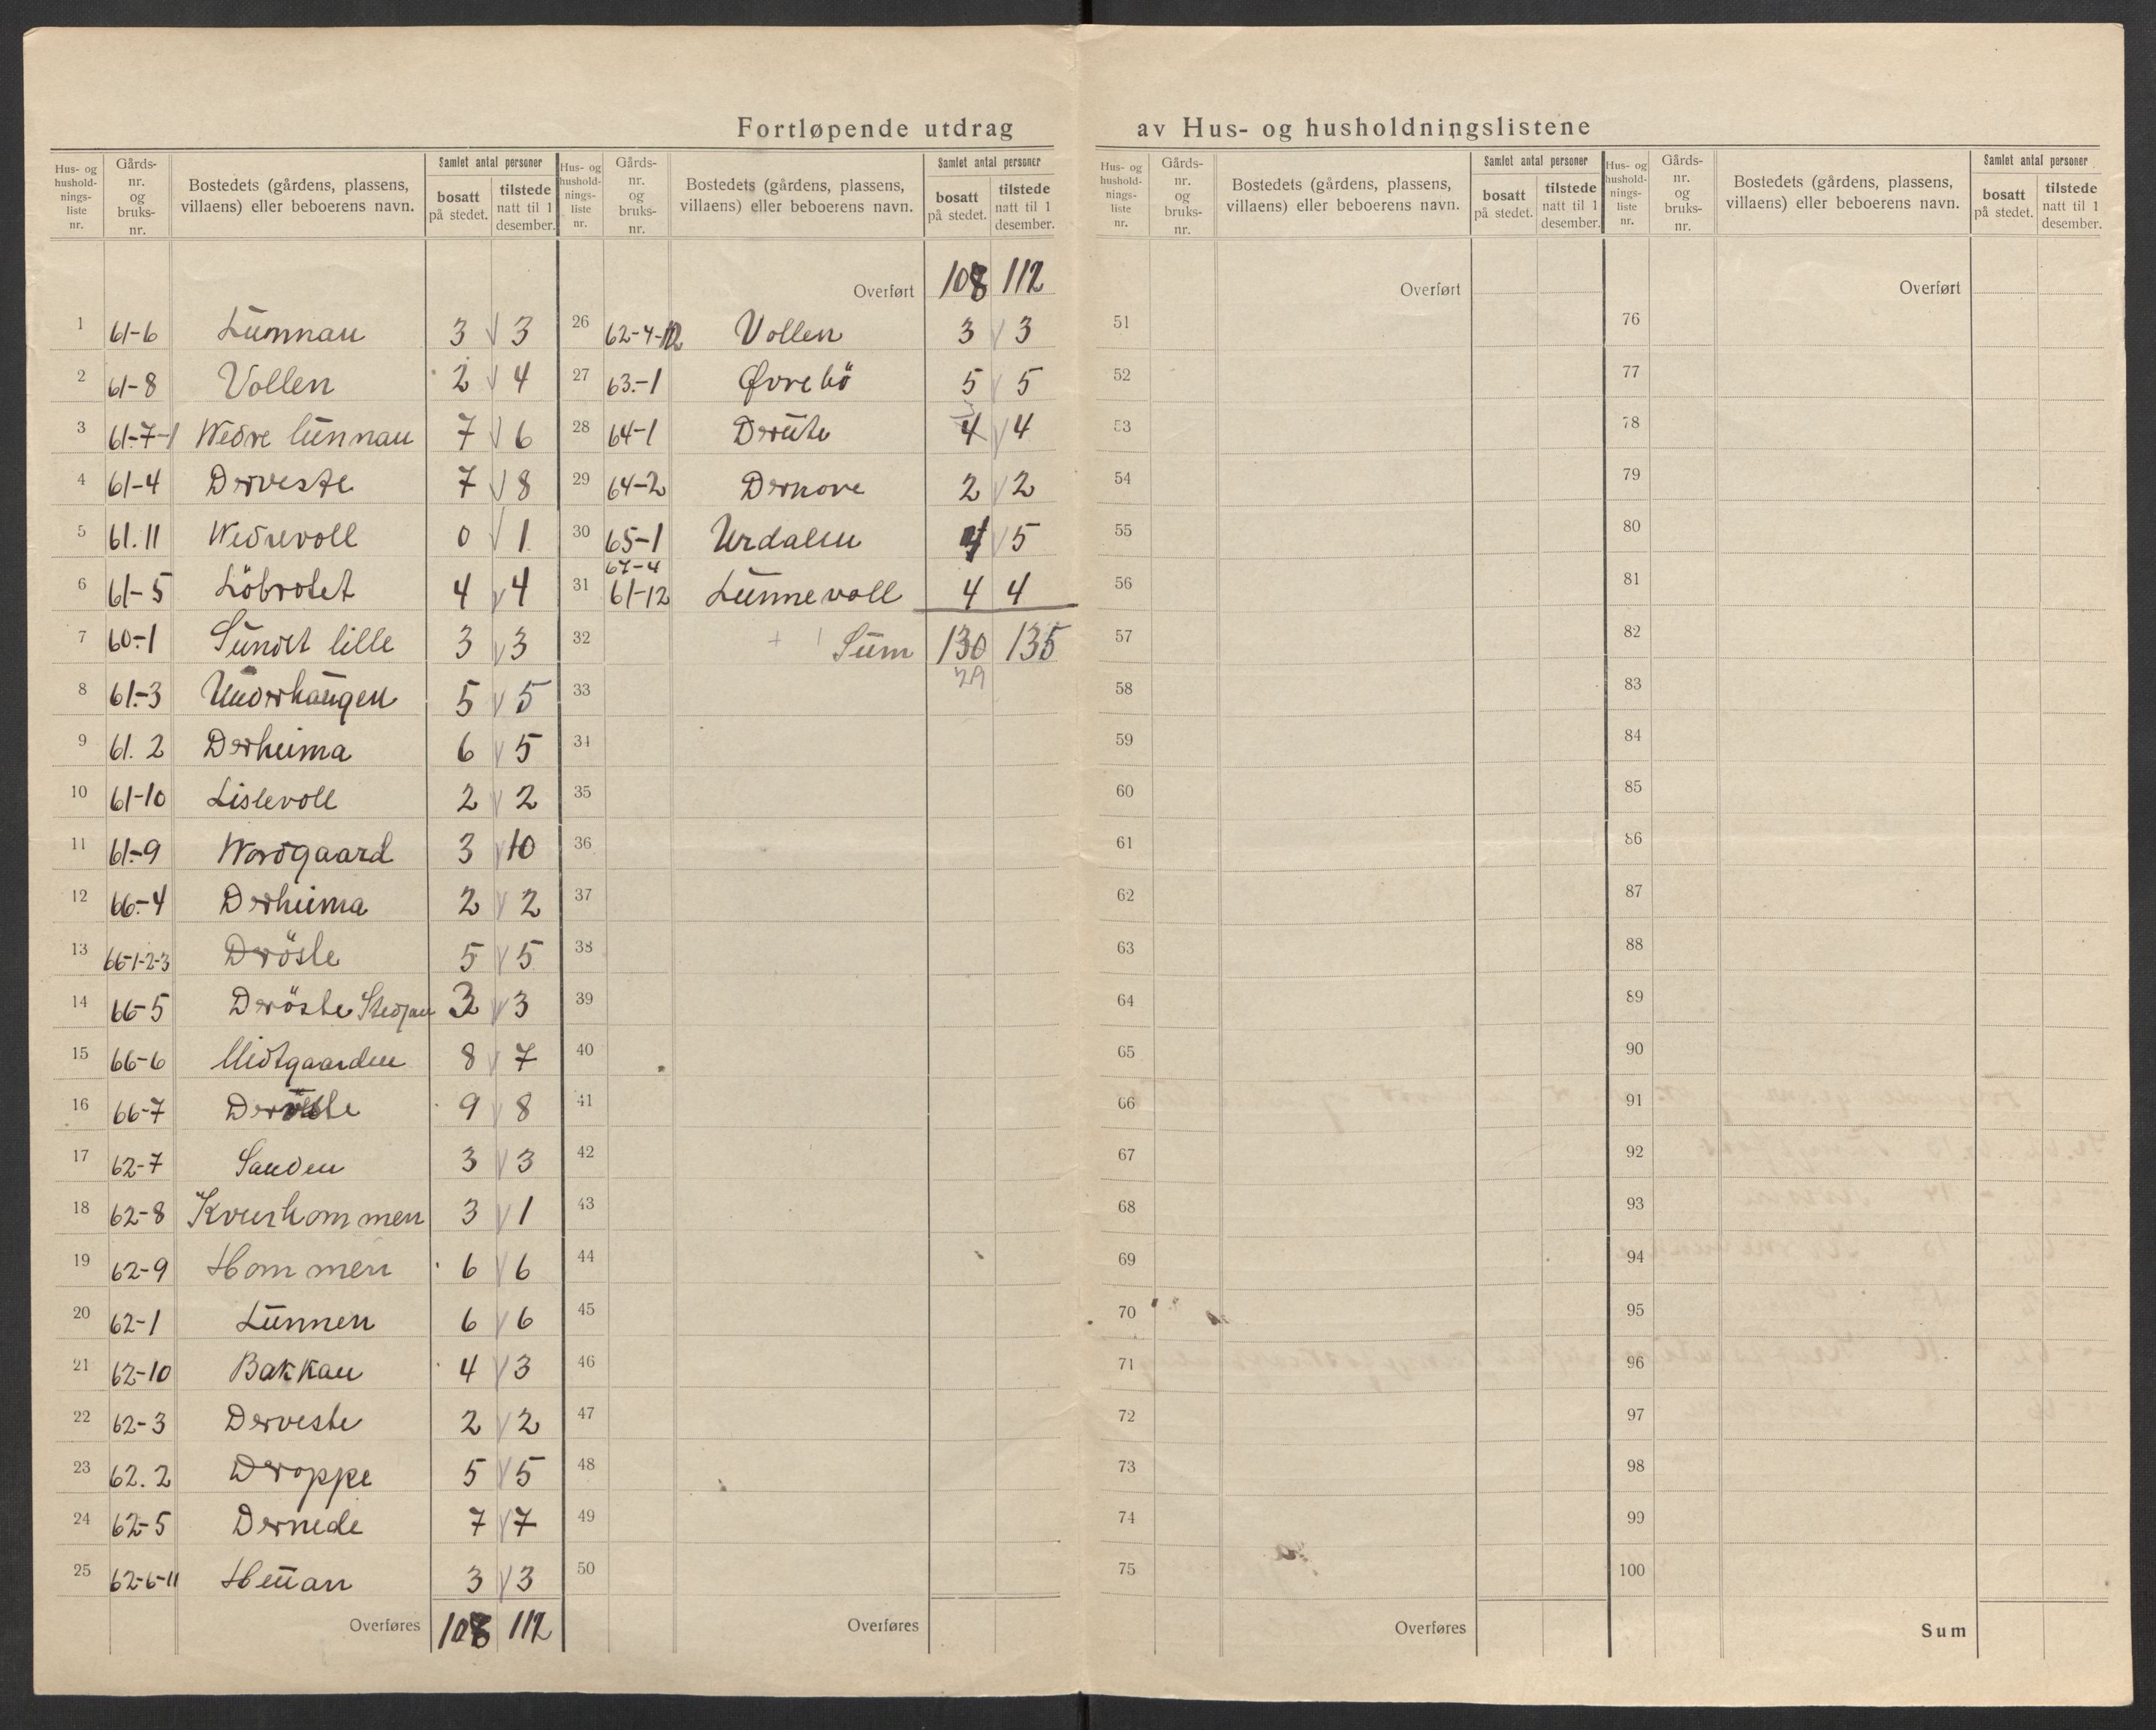 Fortløpende utdrag av Hus- og husholdningslistene
Hus- og hushold-nings-liste nr. | Gårds-nr. og bruks-nr. | Bostedets (gårdens, plassens, villaens) eller beboerens navn. | Samlet antal personer | bosatt på stedet. | tilstede natt til 1 desember.
1 61-6 Lunnan 3 3
2 61-8 Vollen 2 4
3 61-7-1 Nedre lunnan 7 6
4 61-4 Derveste 7 8
5 61.11 Nedrevoll 0 1
6 61-5 Löbrotet 4 4
7 60-1 Sundet lille 3 3
8 61-3 Underhaugen 5 5
9 61.2 Derheima 6 5
10 61-10 Lislevoll 2 2
11 61-9 Nordgaard 3 10
12 66-4 Derheima 2 2
13 66-1-2-3 Dröste 5 5
14 66-5 Deröste 3 3
15 66-6 Midtgaarden 8 7
16 66-7 9 8
17 62-7 Sanden 3 3
18 62-8 Kvernhommen 3 1
19 62-9 Hommen 6 6
20 62-1 Lunnen 6 6
21 62-10 Bakkan 4 3
22 62-3 Derveste 2 2
23 62.2 Deroppe 5 5
24 62-5 Dernede 7 7
25 62-6-11 3 3
Overføres 108 112
Hus- og hushold-nings-liste nr. | Gårds-nr. og bruks-nr. | Bostedets (gårdens, plassens, villaens) eller beboerens navn. | Samlet antal personer | bosatt på stedet. | tilstede natt til 1 desember.
Overført 108 112
26 62-4-12 Vollen 3 3
27 63-1 Øvrebö 5 5
28 64-1 Derute 4 4
29 64-2 Dernore 2 2
30 65-1 Urdalen 4 5
67-4
31 61-12 Lunnevoll 4 4
32 Sum 130 135
29
33
34
35
36
37
38
39
40
41
42
43
44
45
46
47
48
49
50
Overføres
Hus- og hushold-nings-liste nr. | Gårds-nr. og bruks-nr. | Bostedets (gårdens, plassens, villaens) eller beboerens navn. | Samlet antal personer | bosatt på stedet. | tilstede natt til 1 desember.
Overført
51
52
53
54
55
56
57
58
59
60
61
62
63
64
65
66
67
68
69
70
71
72
73
74
75
Overføres
Hus- og hushold-nings-liste nr. | Gårds-nr. og bruks-nr. | Bostedets (gårdens, plassens, villaens) eller beboerens navn. | Samlet antal personer | bosatt på stedet. | tilstede natt til 1 desember.
Overført
76
77
78
79
80
81
82
83
84
85
86
87
88
89
90
91
92
93
94
95
96
97
98
99
100
Sum